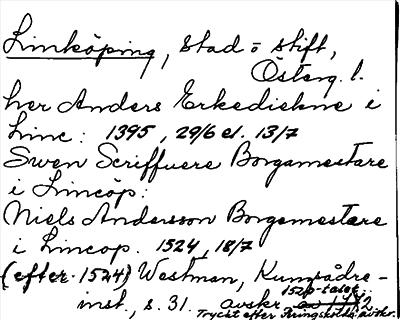 Linköping, stad o stift,
Österg. l.
her Anders Erkediekne i
Linc: 1395, 29/6 el. 13/7
Swen Scriffuere Borgamestare
i Lincöp:
Niels Andersson Borgamestare
i Lincop. 1524, 18/7
(efter 1524) Westman, Kumpådre-
inst., s. 31. avskr. 1520-talet
Tryckt efter Peringskölds avskr.